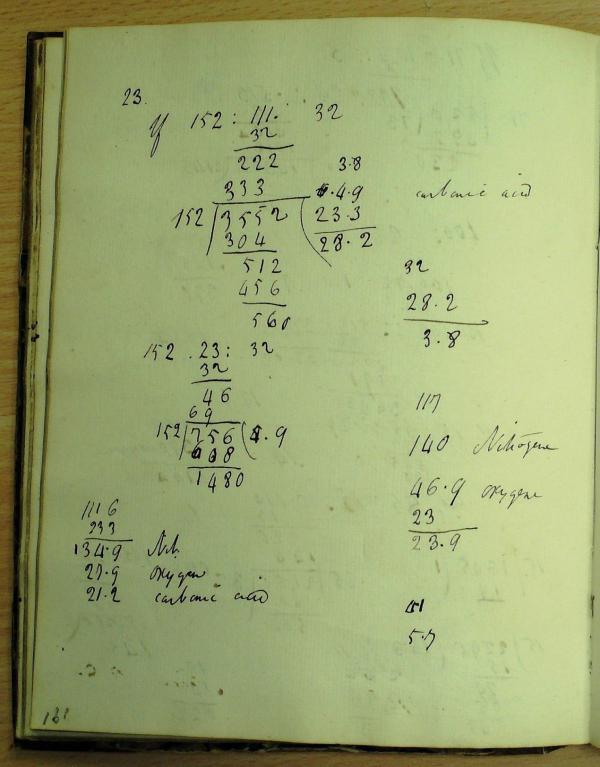 23.
If 152 : 111. 32
32
222 3.8
333 4.9 carbonic acid
152 3552 23.3
304 28.2
512 32
456 28.2
560 3.8
152 . 23 : 32
32
46 117
69
152 756 4.9 140 Nitrogene
608
1480 46.9 oxygene
23
23.9
1116
233
134.9 Nit.
23.9 oxygen
21.2 carbonic acid
41
5.7
161